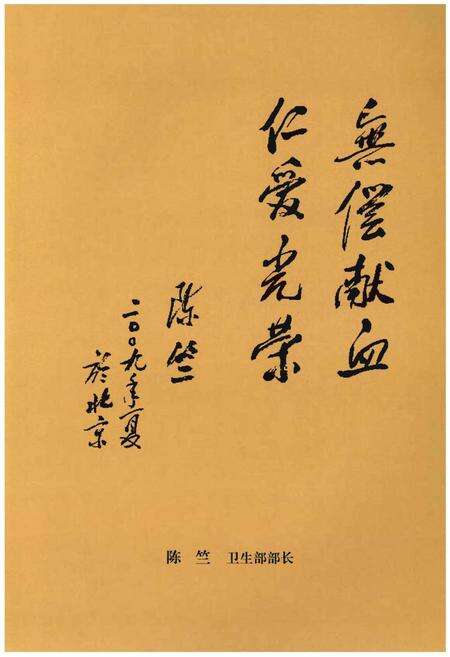 無偿献血
仁爱光荣
陈竺
二〇〇九年夏
於北京
陈 竺 卫生部部长